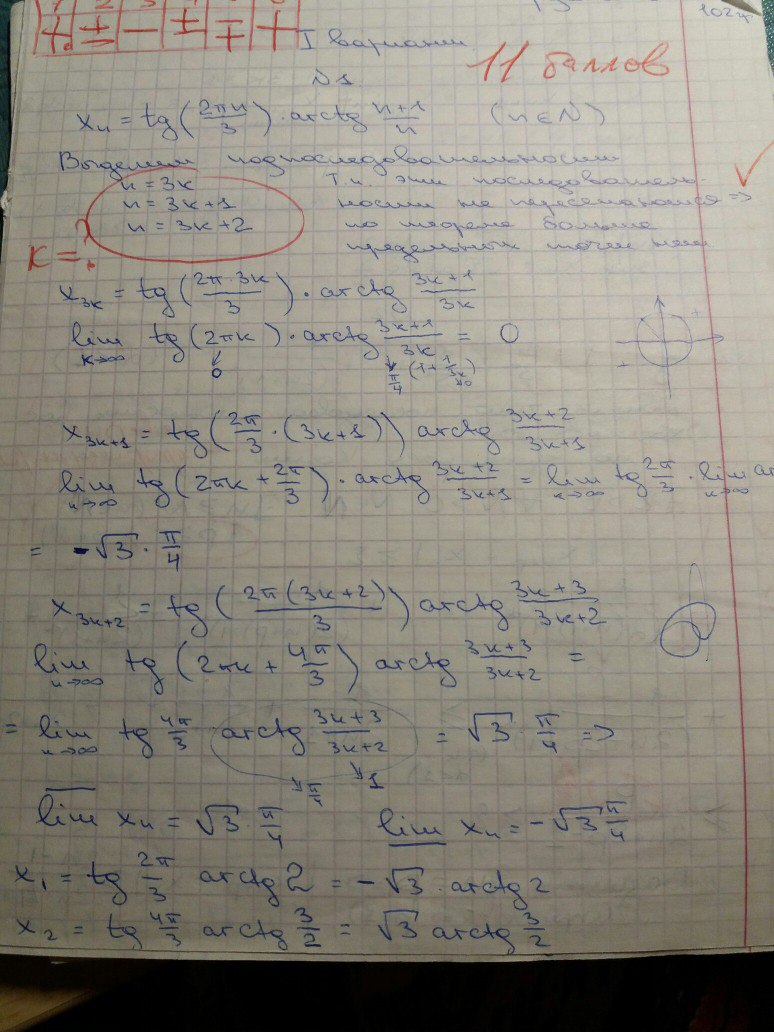 1 2 3 4 5 6
+. ± − ± ∓ +
I вариант
11 баллов
N1
xₙ = tg(2πn/3) · arctg (n+1)/n (n ∈ N)
Выделим подпоследовательности
n = 3k
n = 3k+1
n = 3k+2
k = ?
Т.к. эти последователь-
ности не пересекаются =>
по теореме больше
предельных точек нет
x₃ₖ = tg(2π·3k/3) · arctg (3k+1)/3k
lim k→∞ tg(2πk) · arctg (3k+1)/3k = 0
0
π/4 (1 + 1/3k)
→0
+
+
x₃ₖ₊₁ = tg(2π/3 · (3k+1)) arctg (3k+2)/(3k+1)
lim n→∞ tg(2πk + 2π/3) · arctg (3k+2)/(3k+1) = lim n→∞ tg 2π/3 · lim n→∞ ar
= -√3 · π/4
x₃ₖ₊₂ = tg(2π(3k+2)/3) arctg (3k+3)/(3k+2)
lim n→∞ tg(2πk + 4π/3) arctg (3k+3)/(3k+2) =
= lim n→∞ tg 4π/3 arctg (3k+3)/(3k+2) = √3 · π/4 =>
π/4 1
l̅i̅m̅ xₙ = √3 · π/4 l̲i̲m̲ xₙ = -√3 π/4
x₁ = tg 2π/3 arctg 2 = -√3 · arctg 2
x₂ = tg 4π/3 arctg 3/2 = √3 arctg 3/2